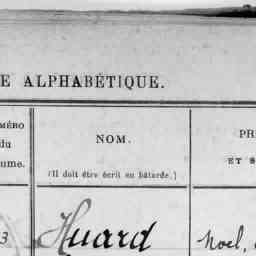 E ALPHABÉTIQUE.
MÉRO
du
ume.
NOM.
(Il doit être écrit en bâtarde.)
PR
ET S
3
Huard
Noel,